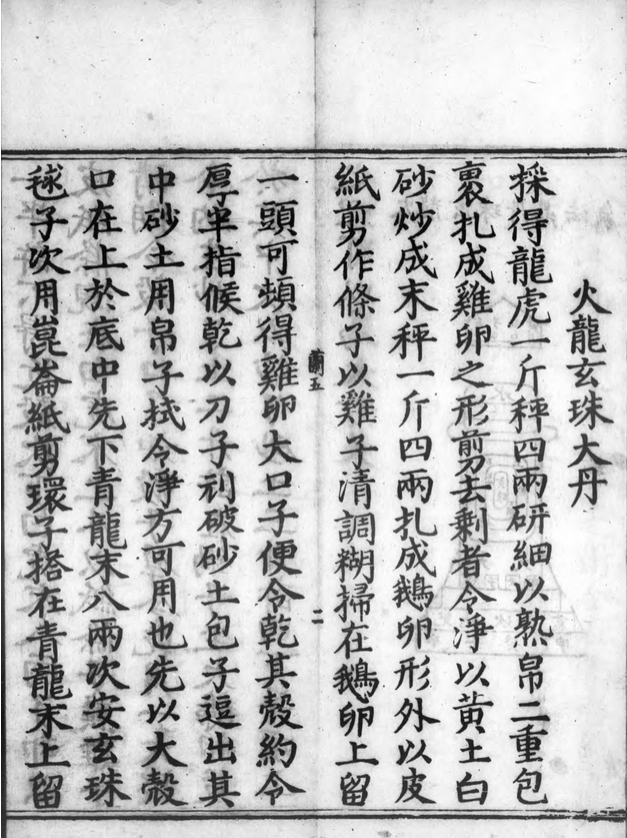 火龍玄珠大丹
採得龍虎一斤秤四兩研細以熟帛二重包
裹扎成雞卵之形剪去剩者令淨以黃土白
砂炒成末秤一斤四兩扎成鵝卵形外以皮
紙剪作條子以雞子清調糊掃在鵝卵上留
蘭五
二
一頭可頓得雞卵大口子便令乾其殼約令
厚半指候乾以刀子刓破砂土包子逗出其
中砂土用帛子拭令淨方可用也先以大殼
口在上於底中先下青龍末八兩次安玄珠
毬子次用崑崙紙剪環子搭在青龍末上留